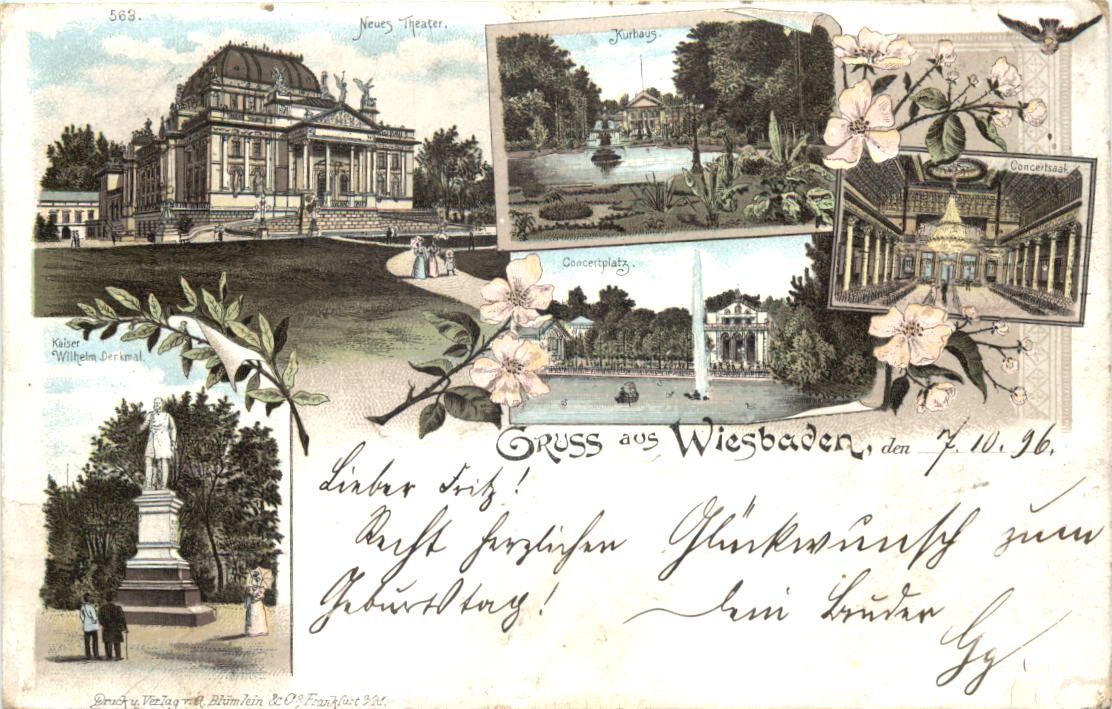 563.
Neues Theater.
Kurhaus.
Concertsaal.
Concertplatz.
Kaiser
Wilhelm Denkmal.
Gruss aus Wiesbaden, den 7.10.96.
Lieber Fritz!
Recht herzlichen Glückwunsch zum
Geburtstag! Dein Bruder
Gg.
Druck u. Verlag v. A. Blümlein & Co. Frankfurt a/M.